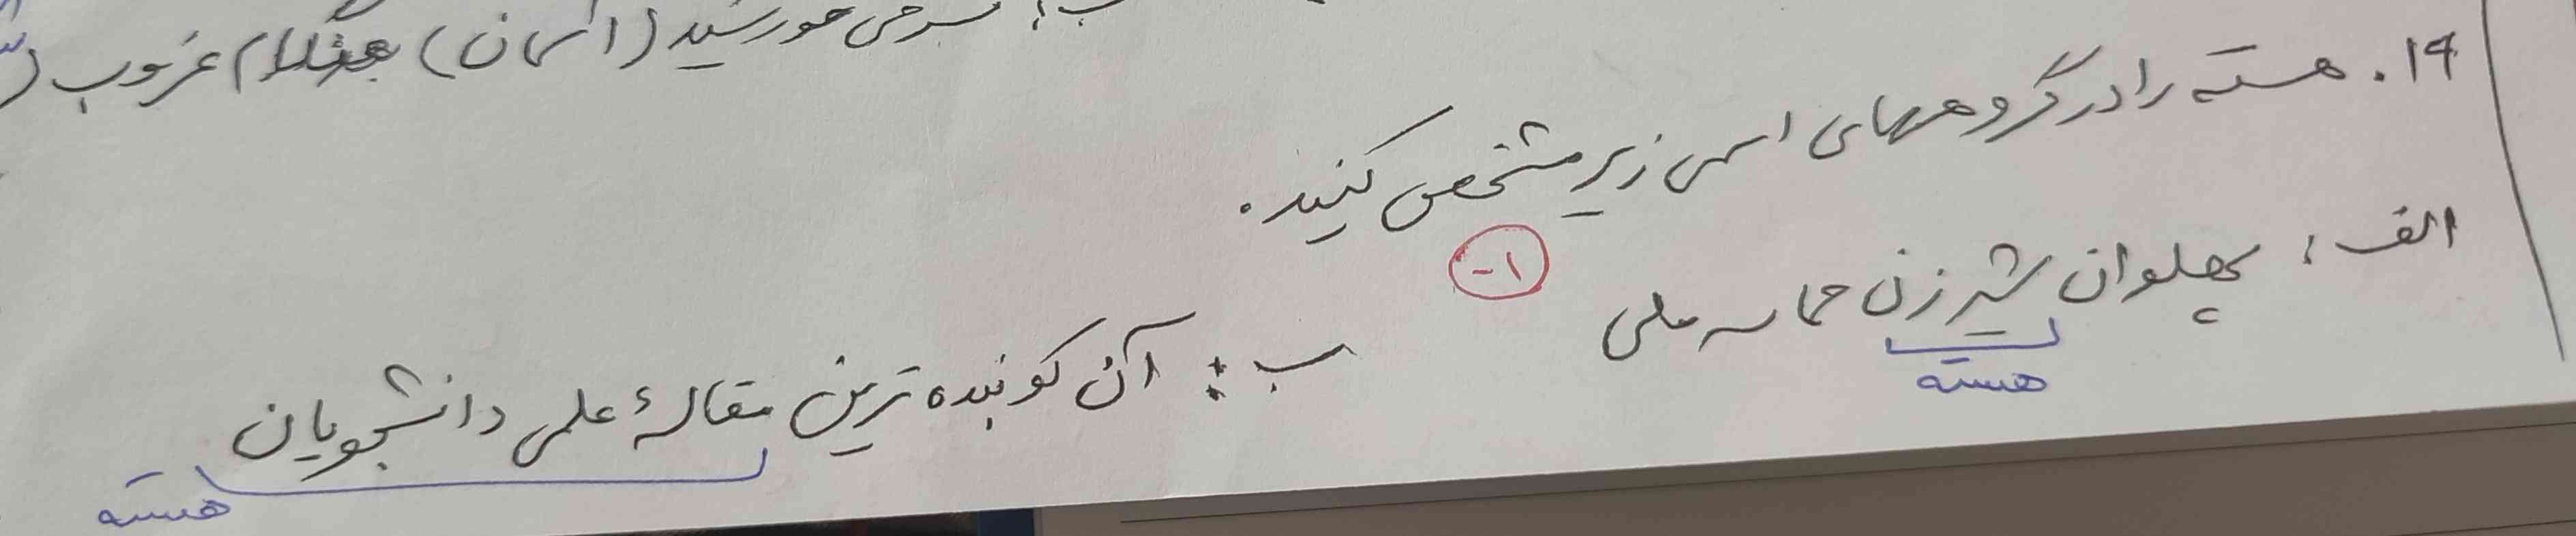 ب: سرخی خورشید (آسمان) هنگام غروب (
۱۹. هسته را در گروههای اسمی زیر مشخص کنید.
الف: پهلوان شیرزن حماسه ملی
-۱
هسته
ب: آن کوبنده ترین مقالهٔ علمی دانشجویان
هسته